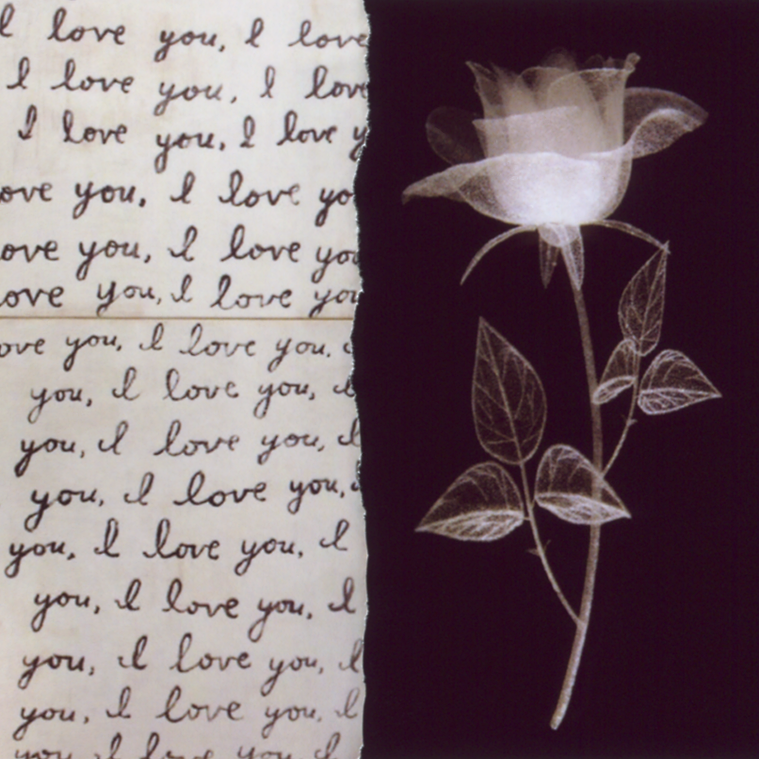 I love you, I love
I love you, I love
I love you, I love y
ove you, I love yo
ove you, I love you
ove you, I love you
ove you, I love you,
you, I love you, I
you, I love you, I
you, I love you,
you, I love you, I
you, I love you, I
you, I love you, I
you, I love you, I
you I love you I